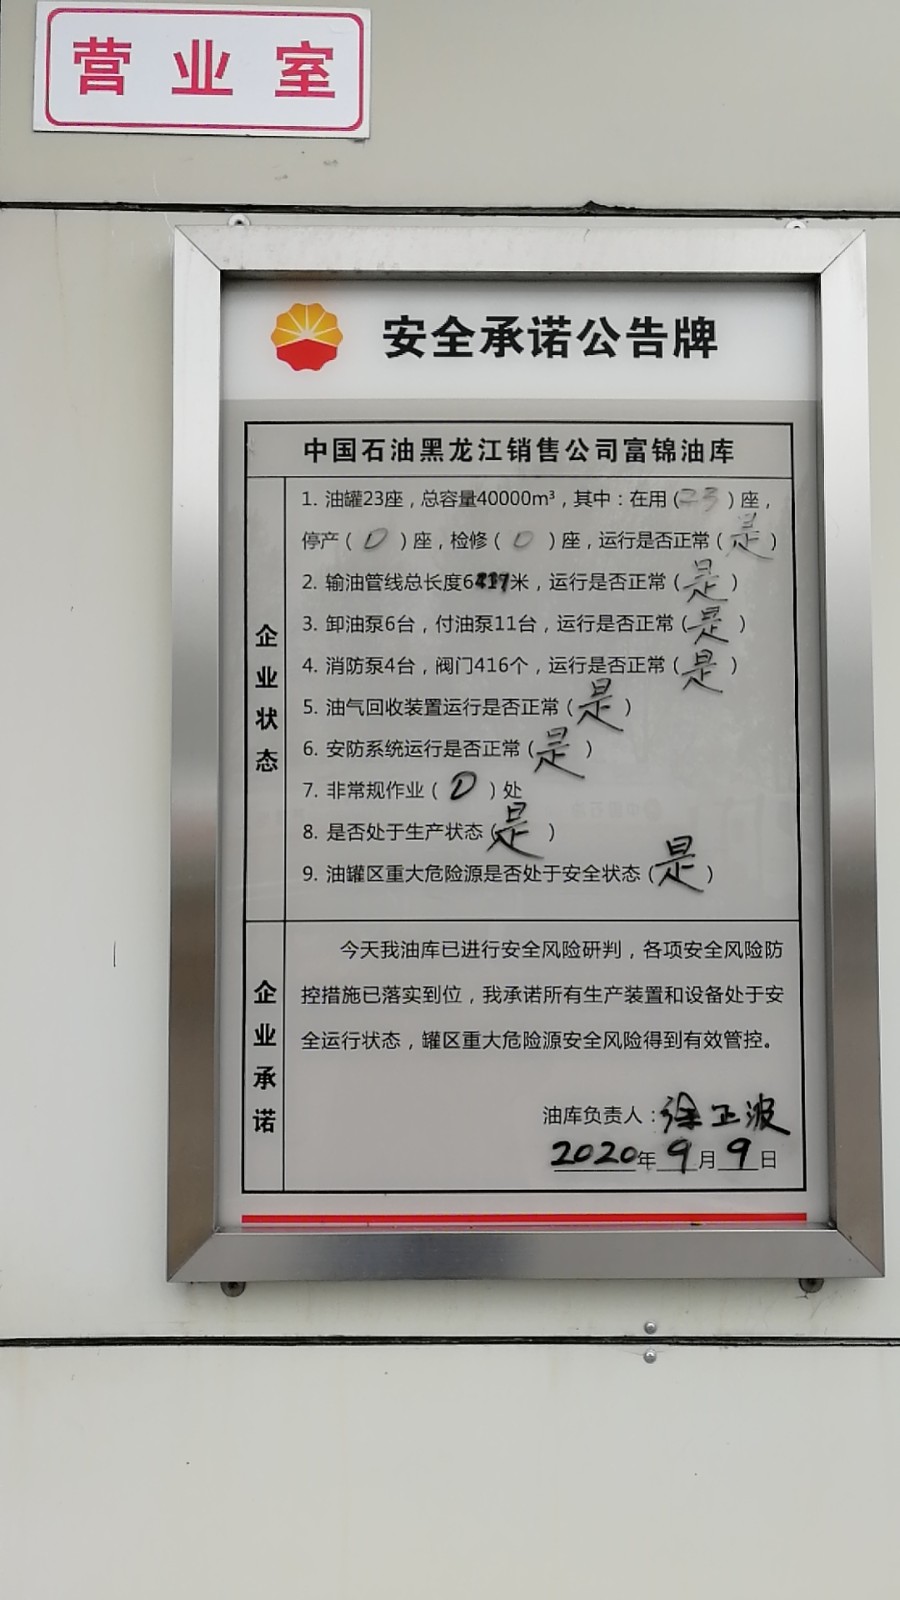 营业室
安全承诺公告牌
中国石油黑龙江销售公司富锦油库
企业状态
1. 油罐23座，总容量40000m³，其中：在用（23）座，
停产（0）座，检修（0）座，运行是否正常（是）
2. 输油管线总长度米，运行是否正常（是）
3. 卸油泵6台，付油泵11台，运行是否正常（是）
4. 消防泵4台，阀门416个，运行是否正常（是）
5. 油气回收装置运行是否正常（是）
6. 安防系统运行是否正常（是）
7. 非常规作业（0）处
8. 是否处于生产状态（是）
9. 油罐区重大危险源是否处于安全状态（是）
企业承诺
今天我油库已进行安全风险研判，各项安全风险防
控措施已落实到位，我承诺所有生产装置和设备处于安
全运行状态，罐区重大危险源安全风险得到有效管控。
油库负责人：徐正波
2020年9月9日